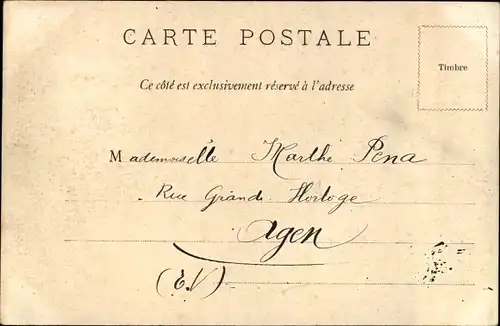 CARTE POSTALE
Timbre
Ce côté est exclusivement réservé à l'adresse
Mademoiselle Marthe Pena
Rue Grande Horloge
Agen
(E.V)